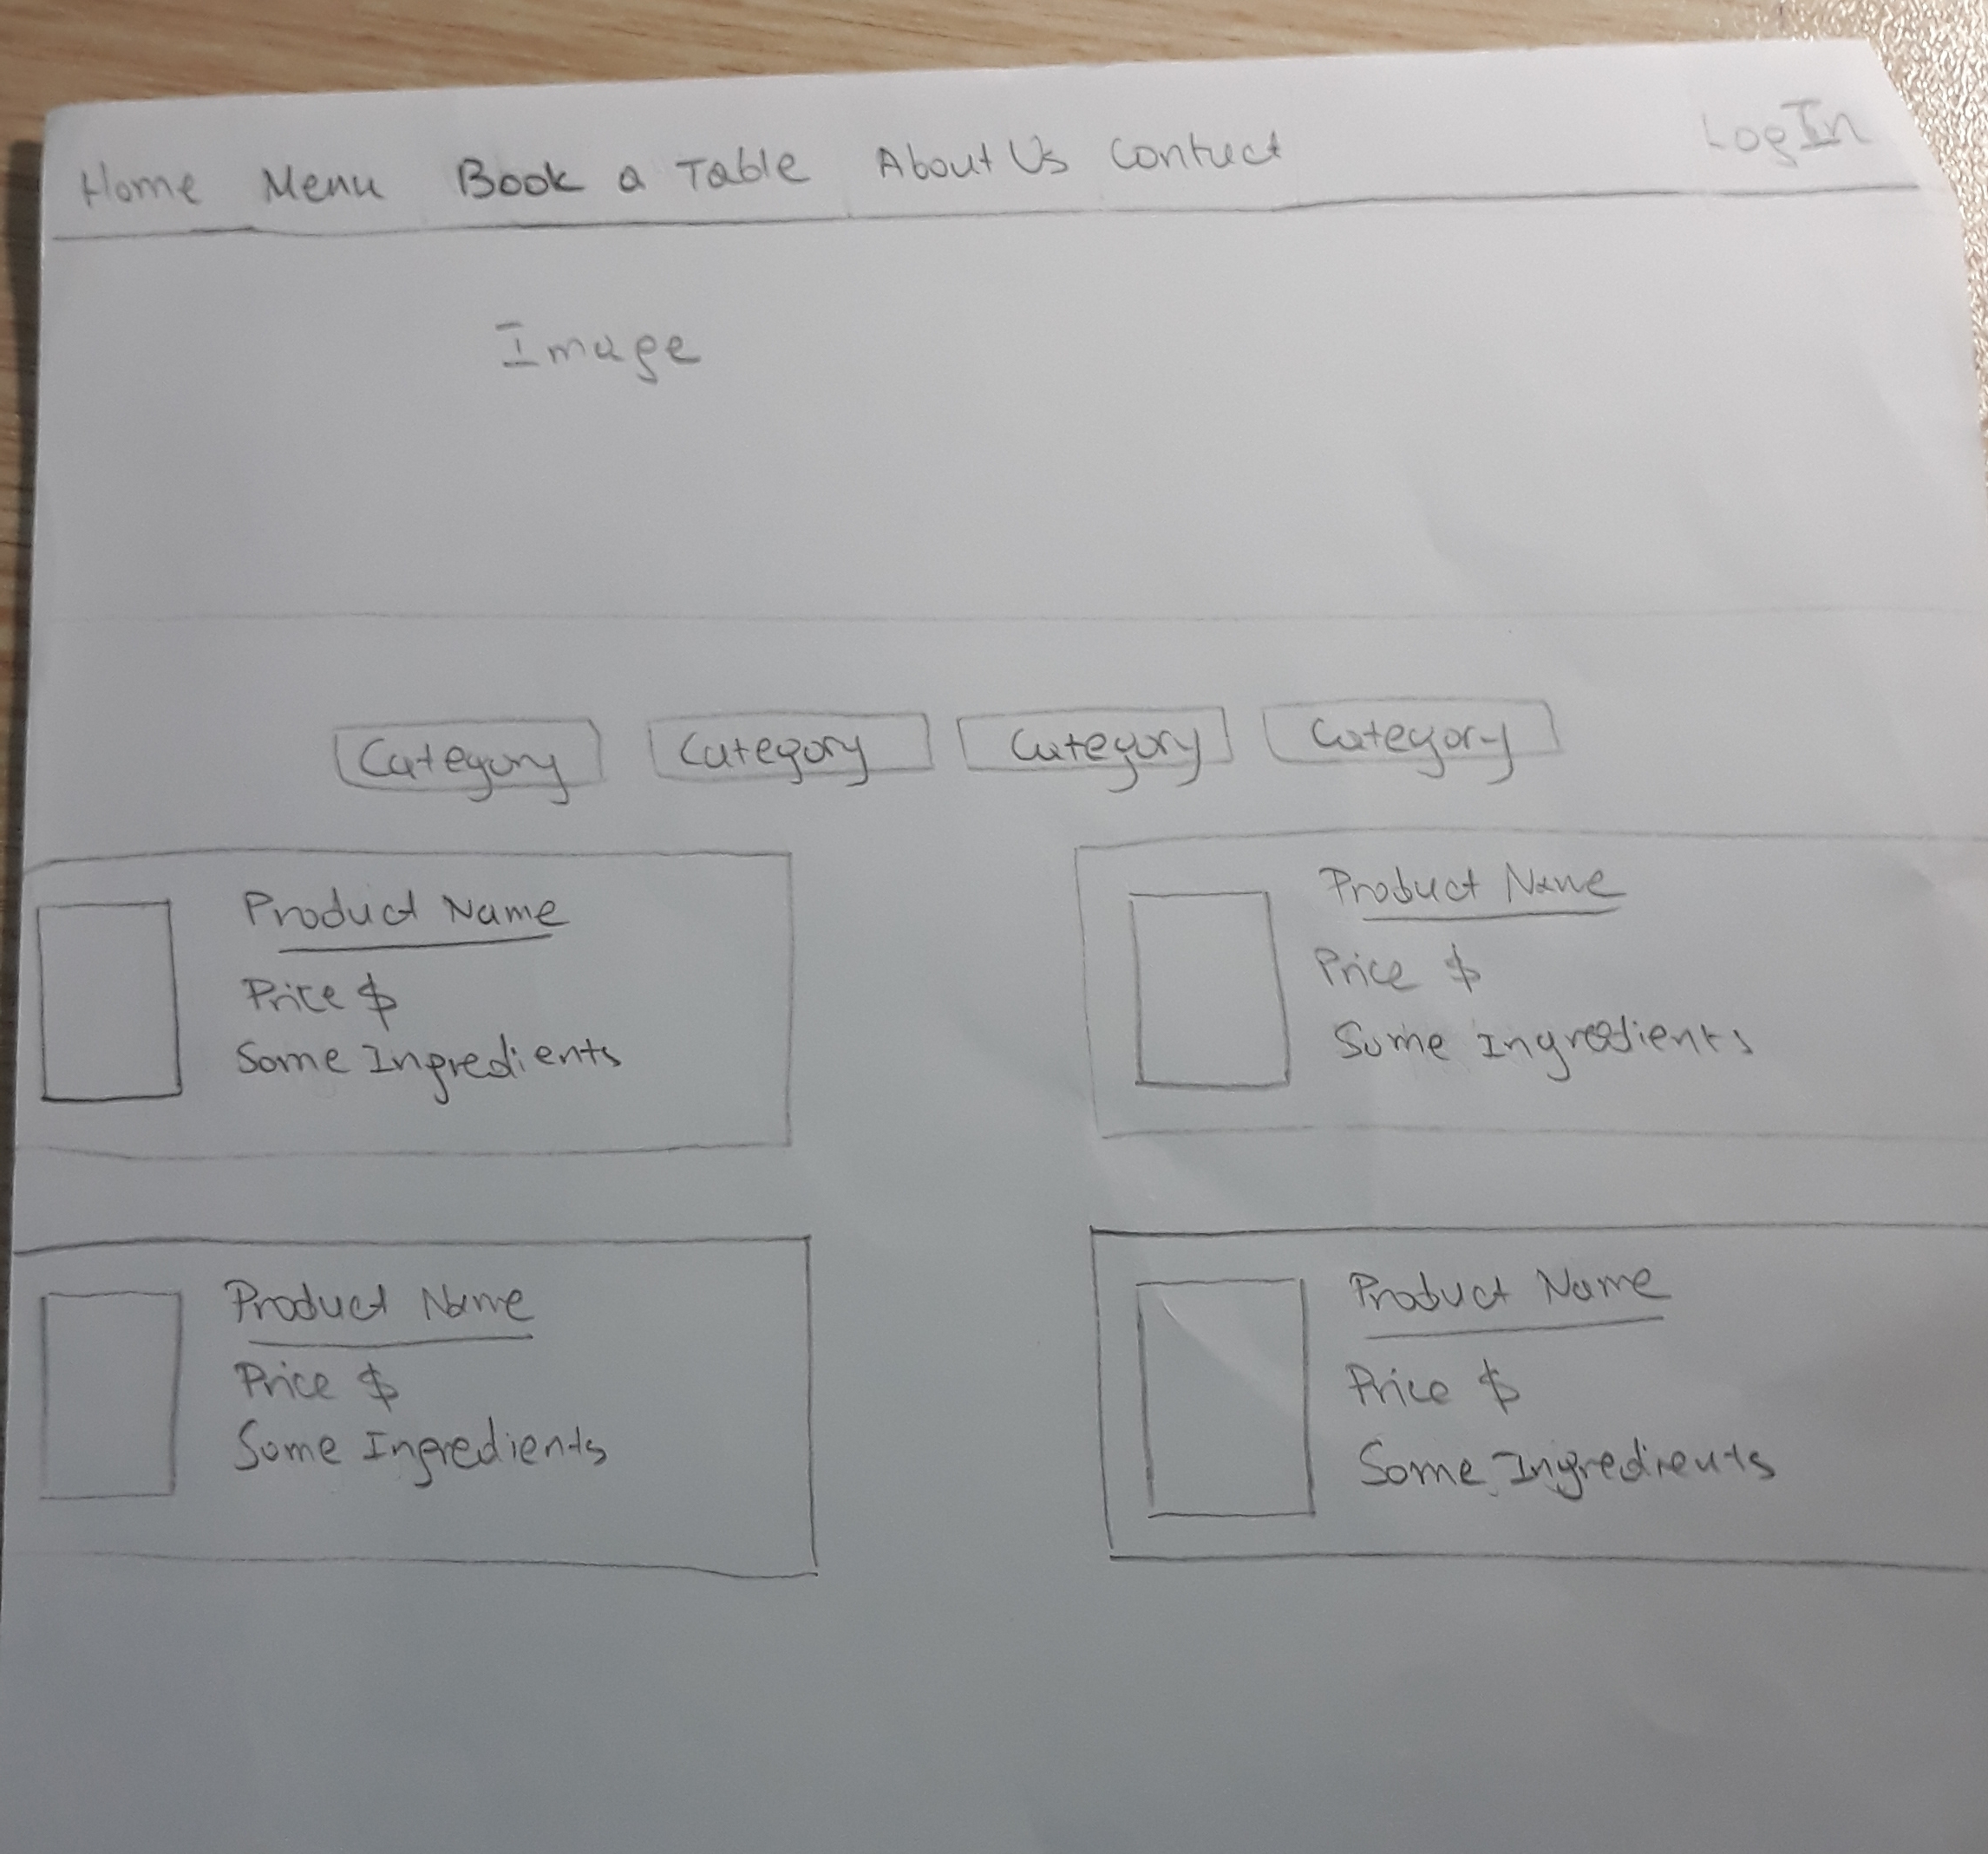 Home Menu Book a Table About Us Contact LogIn
Image
Category Category Category Category
Product Name
Price $
Some Ingredients
Product Name
Price $
Some Ingredients
Product Name
Price $
Some Ingredients
Product Name
Price $
Some Ingredients